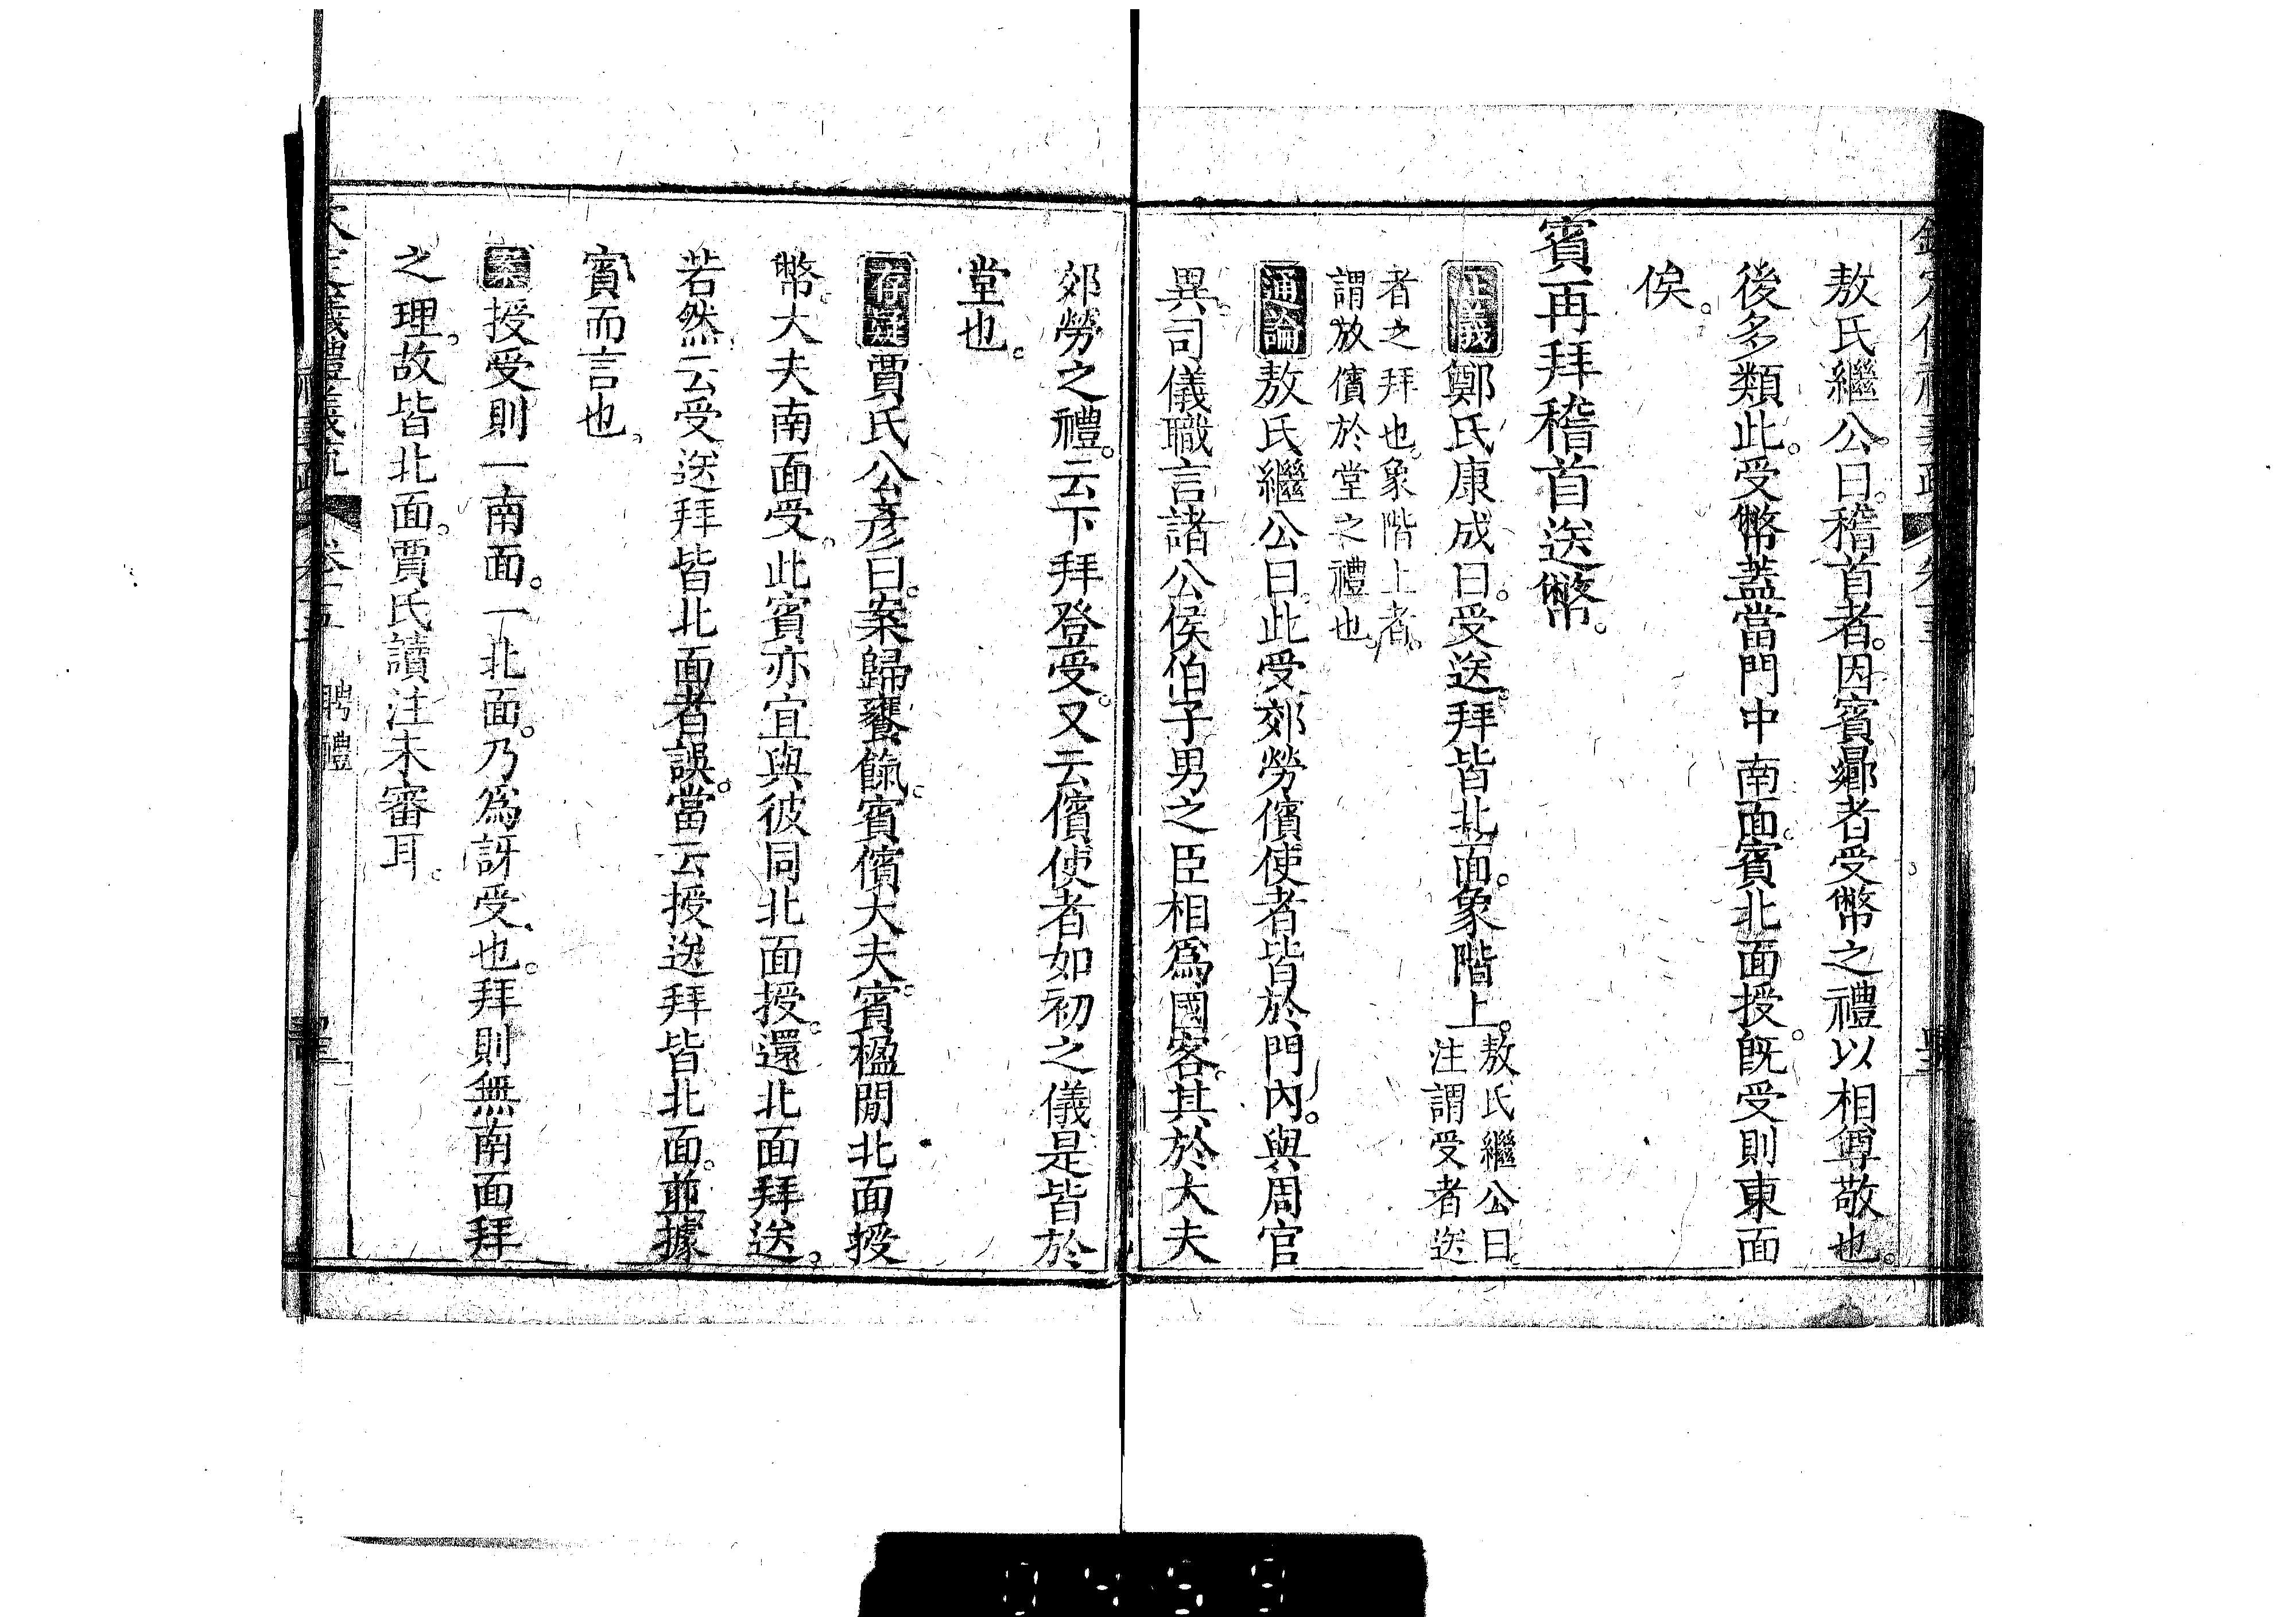 敖氏繼公曰。稽首者。因賓鄕者受幣之禮以相尊敬也。
後多類此。受幣蓋當門中南面。賓北面授。旣受則東面
俟。
賓再拜稽首送幣。
正義鄭氏康成曰。受送。拜皆北面。象階上。敖氏繼公曰。
注謂受者送
者之拜也。象階上者。
謂放儐於堂之禮也。
通論敖氏繼公曰。此受郊勞儐使者皆於門內。與周官
異。司儀職言諸公侯伯子男之臣相爲國客。其於大夫
郊勞之禮。云下拜登受。又云儐使者如初之儀是皆於
堂也。
存疑賈氏公彥曰。案歸饔餼。賓儐大夫。賓楹閒北面授
幣。大夫南面受。此賓亦宜與彼同北面授。還北面拜送。
若然。云受送拜皆北面者誤。當云授送拜皆北面。並據
賓而言也。
案授受則一南面。一北面。乃爲訝受也。拜則無南面拜
之理。故皆北面。賈氏讀注未審耳。
卷十五 聘禮